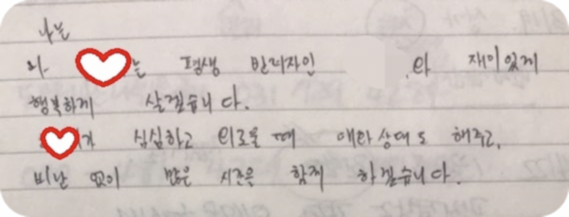 나는
는 평생 반려자인 와 재미있게
행복하게 살겠습니다.
심심하고 외로울 때 대화상대도 해주고,
비난 없이 많은 시간을 함께 하겠습니다.